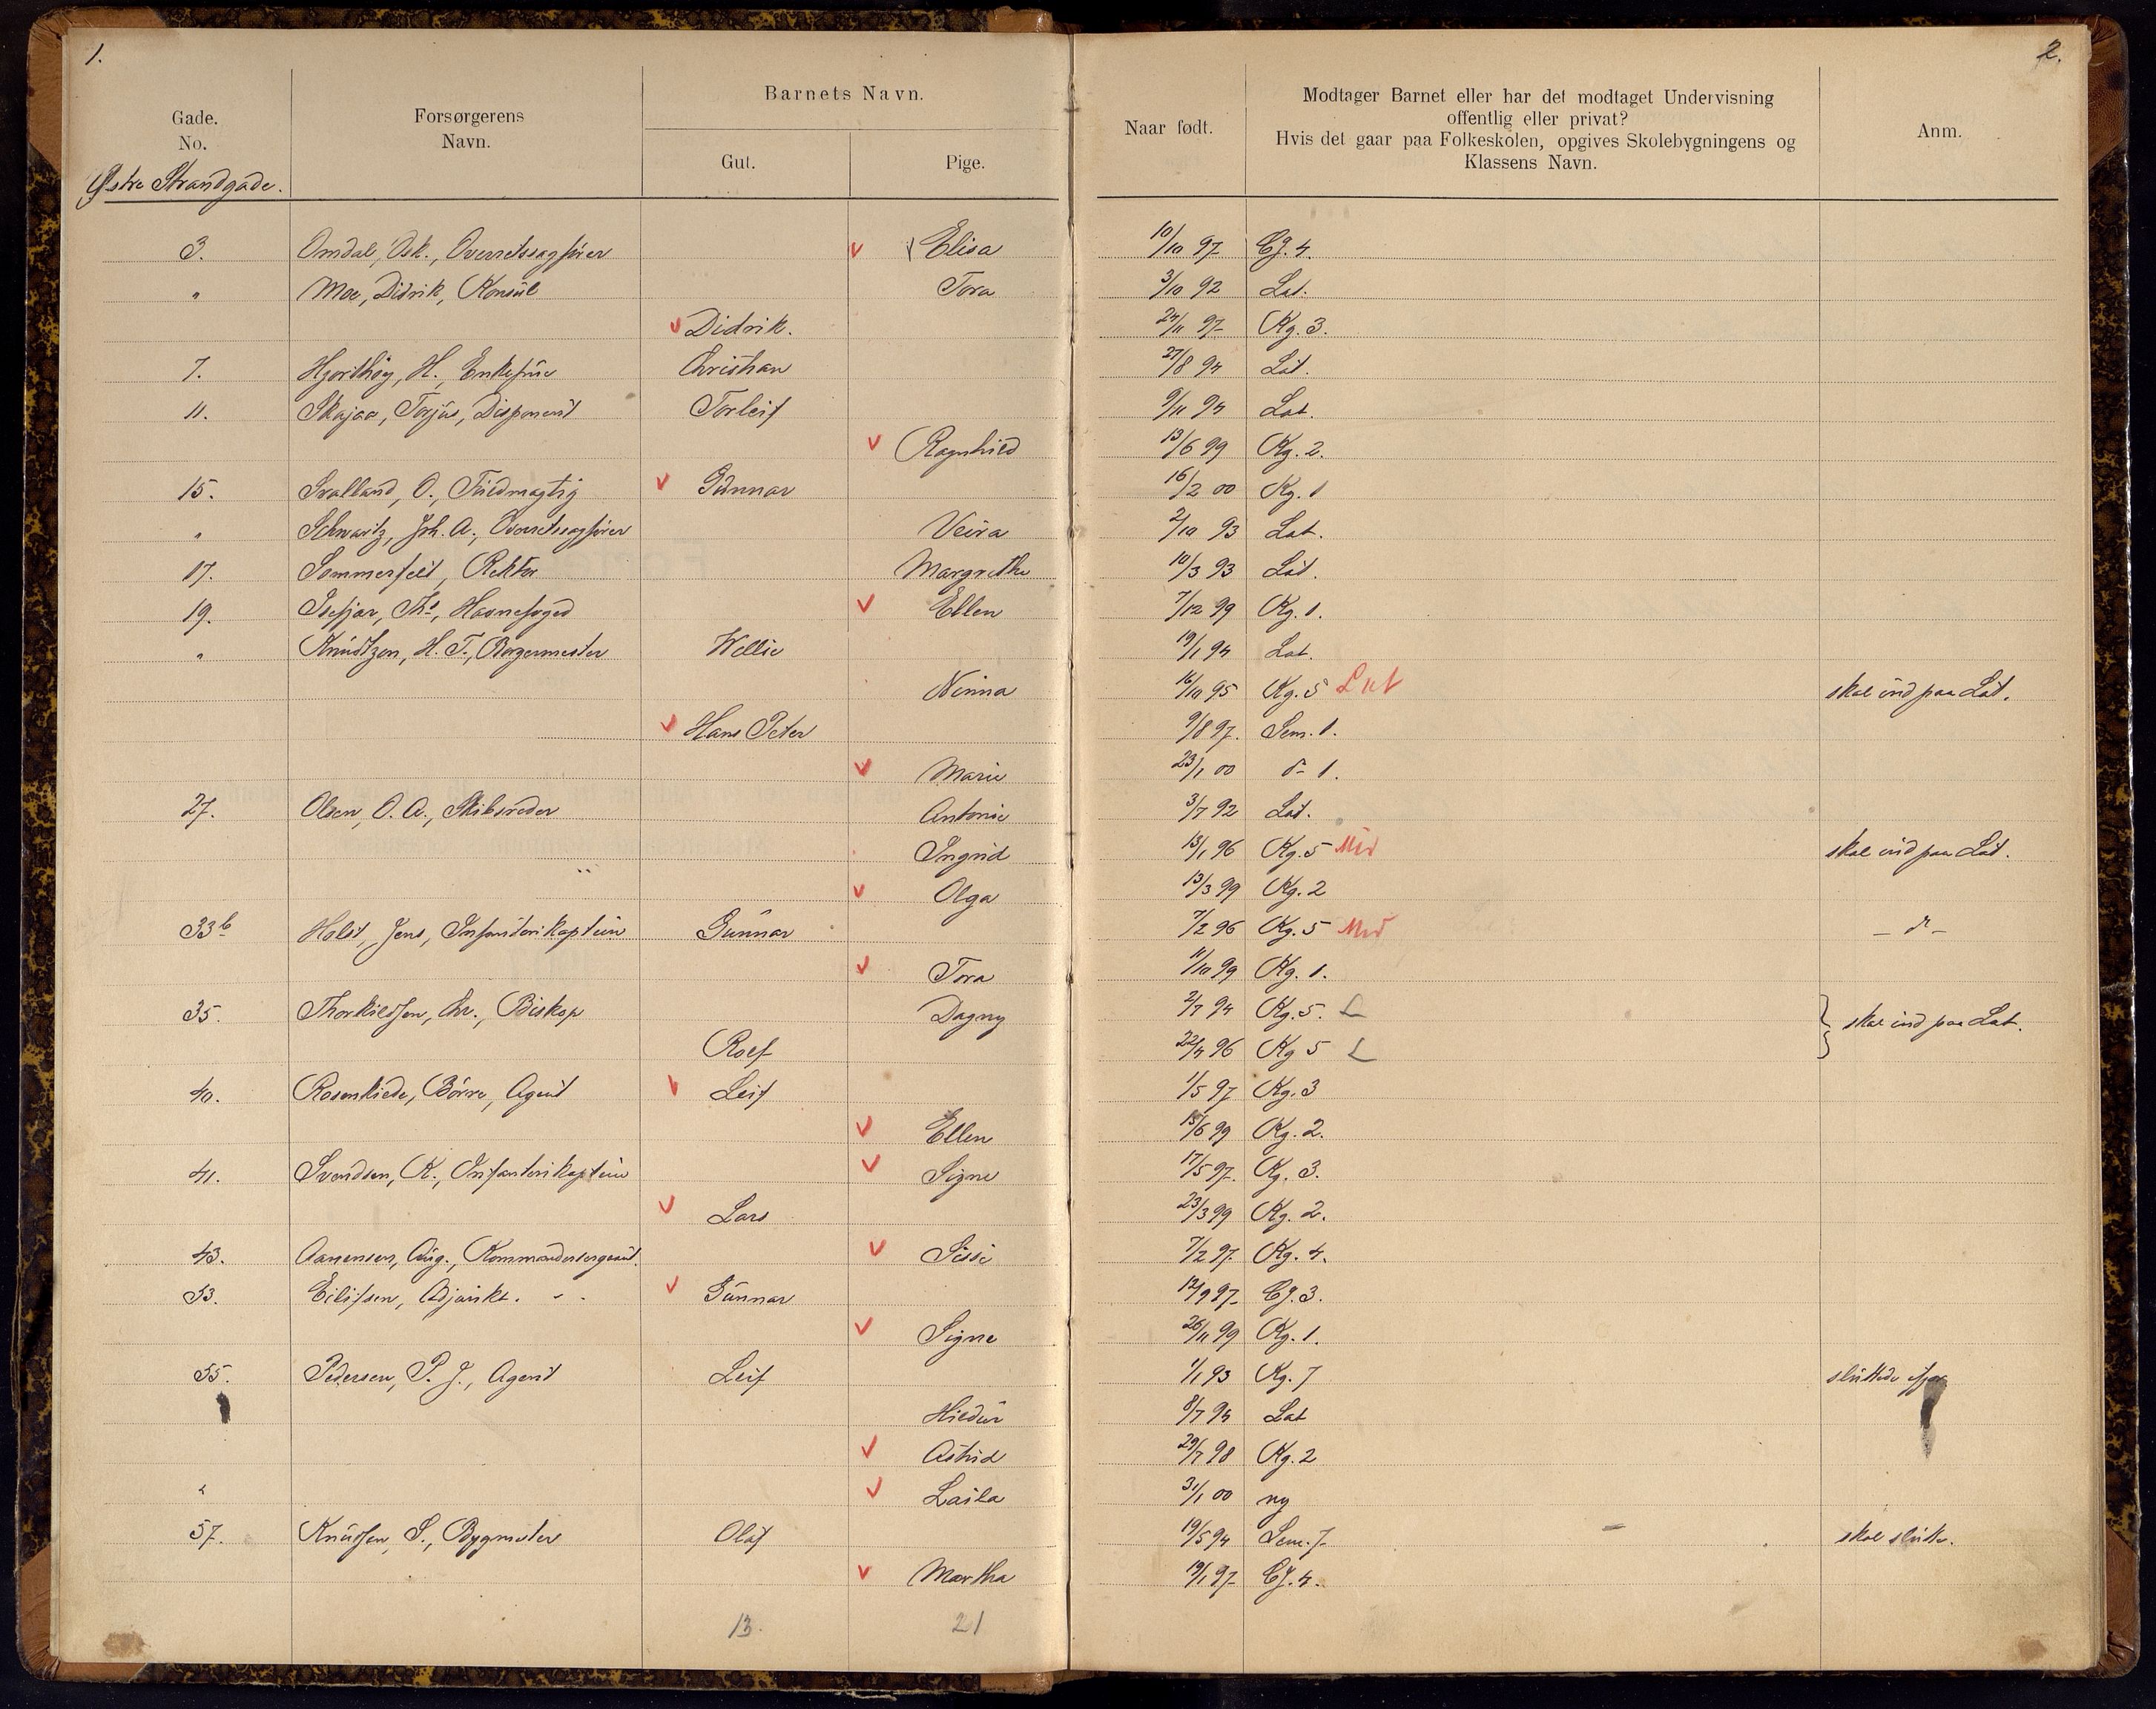 1.
2.
Gade.
No.
Forsørgerens
Navn.
Barnets Navn.
Gut.
Pige.
Naar født.
Modtager Barnet eller har det modtaget Undervisning
offentlig eller privat?
Hvis det gaar paa Folkeskolen, opgives Skolebygningens og
Klassens Navn.
Anm.
Østre Strandgade.
3. Omdal, Osk., Overretssagfører v Elisa 10/10 97 Cg. 4.
" Moe, Didrik, Konsul Tora 3/10 92 Lat.
v Didrik. 24/11 97 Kg. 3.
7. Hjorthøy, H. Enkefrue Christian 27/8 94 Lat.
11. Skajaa, Torjus, Disponent Torleif 9/11 94 Lat.
v Ragnhild 13/6 99 Kg. 2.
15. Svalland, O., Fuldmægtig v Gunnar 16/2 00 Kg. 1
" Schwartz, Joh. A., Overretssagfører Veira 2/10 93 Lat.
17. Sommerfelt, Rektor Margrethe 10/3 93 Lat.
19. Isefjær, Ths, Havnefoged v Ellen 7/12 99 Kg. 1.
" Knudtzon, H. T., Borgermester Willie 19/1 94 Lat.
Ninna 16/10 95 Kg. 5 Lat skal ind paa Lat.
v Hans Peter 9/8 97. Sem. 1.
v Marie 23/1 00 do 1.
27. Olsen, O. A., Skibsreder Antonie 3/7 92 Lat.
Ingrid 13/1 96 Kg. 5 Mid skal ind paa Lat.
v Olga 13/3 99 Kg. 2
33b Holst, Jens, Infanterikaptein Gunnar 7/2 96 Kg. 5 Mid — do —
v Tora 11/10 99 Kg. 1.
35. Thorkildsen, Chr., Biskop Dagny 2/7 94 Kg. 5. L
} skal ind paa Lat.
Rolf 22/4 96 Kg 5 L
40. Rosenkilde, Börre, Agent v Leif 1/5 97 Kg. 3
v Ellen 15/6 99 Kg. 2.
41. Svendsen, K., Infanterikaptein v Signe 17/5 97. Kg. 3.
v Lars 23/3 99 Kg. 2.
43. Aanensen, Aug., Kommandersergeant. v Sissi 7/2 97. Kg. 4.
53. Eilifsen, Adjunkt. v Gunnar 12/9 97 Cg. 3.
v Signe 26/11 99 Kg. 1.
55. Pedersen, P. J., Agent Leif 1/1 93 Kg. 7 sluttede ifjor
Hildur 8/7 94 Lat
v Astrid 29/7 98 Kg. 2
" v Laila 31/1 00 ny
57. Knudsen, S., Bygmester Olaf 19/5 94 Sem. 7 skal slutte.
v Martha 19/1 97 Cg. 4.
13. 21